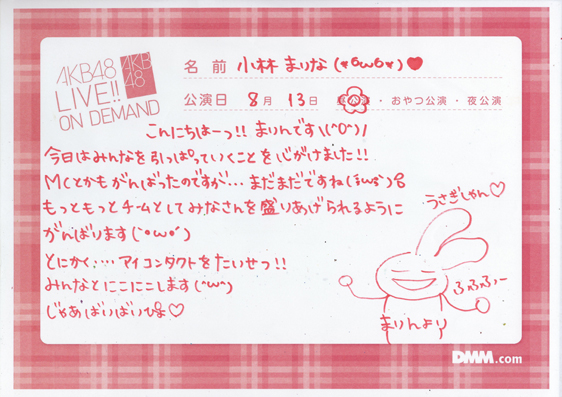 AKB48
LIVE!!
ON DEMAND
AKB
48
名前 小林 まりな (*óωò*)♥
公演日 8月 13日 昼公演・おやつ公演・夜公演
こんにちはーっ!! まりんです\(^O^)/
今日はみんなを引っぱっていくことを心がけました!!
MCとかもがんばったのですが… まだまだですね(;ω;)
もっともっとチームとしてみなさんを盛りあげられるように
がんばります(`・ω・´)
とにかく‥‥アイコンタクトをたいせつ!!
みんなとにこにこします(^ω^)
じゃあばいばいぴよ♡
うさぎしゃん♡
ふふふー
まりんより
DMM.com